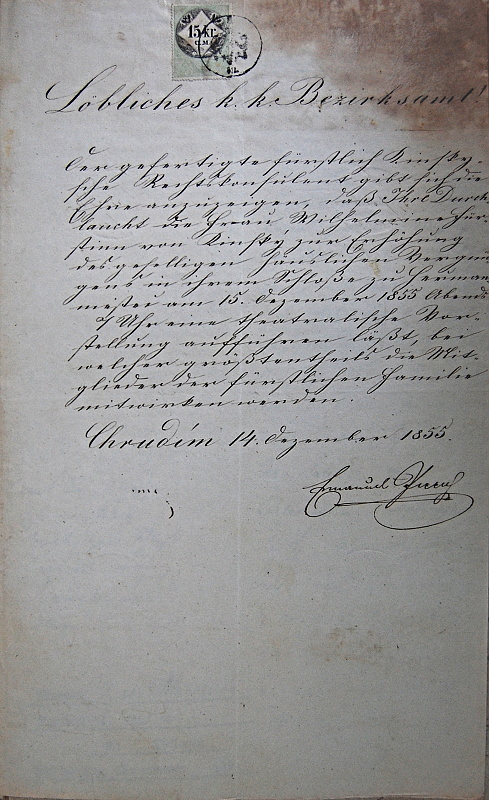 15 kr.
C.M.
Löbliches k. k. Bezirksamt!
Der gefertigte fürstlich Kinsky-
sche Rechtskonsulent gibt sich die
Ehre anzuzeigen, daß Ihre Durch
laucht die Frau Wilhelmine Für-
stinn von Kinský zur Erhöhung
des geselligen häuslichen Vergnü
gens in ihrem Schloße zu Herman
mestec am 15. Dezember 1855 Abends
7 Uhr eine theatralische Vor-
stellung aufführen läßt, bei
welcher größtentheils die Mit-
glieder der fürstlichen Familie
mitwirken werden.
Chrudim 14. Dezember 1855.
Emanuel